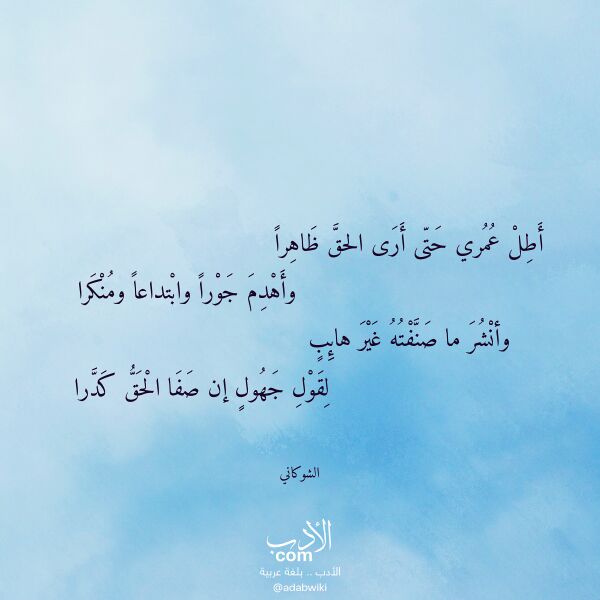 أَطِلْ عُمُري حَتّى أَرَى الحقَّ ظَاهِراً
وأَهْدِمَ جَوْراً وابْتداعاً ومُنْكَرا
وأنْشُرَ ما صَنَّفْتُهُ غَيْرَ هائِبٍ
لِقَوْلِ جَهُولٍ إن صَفَا الْحَقُّ كَدَّرا
الشوكاني
الأدب
com
الأدب .. بلغة عربية
@adabwiki